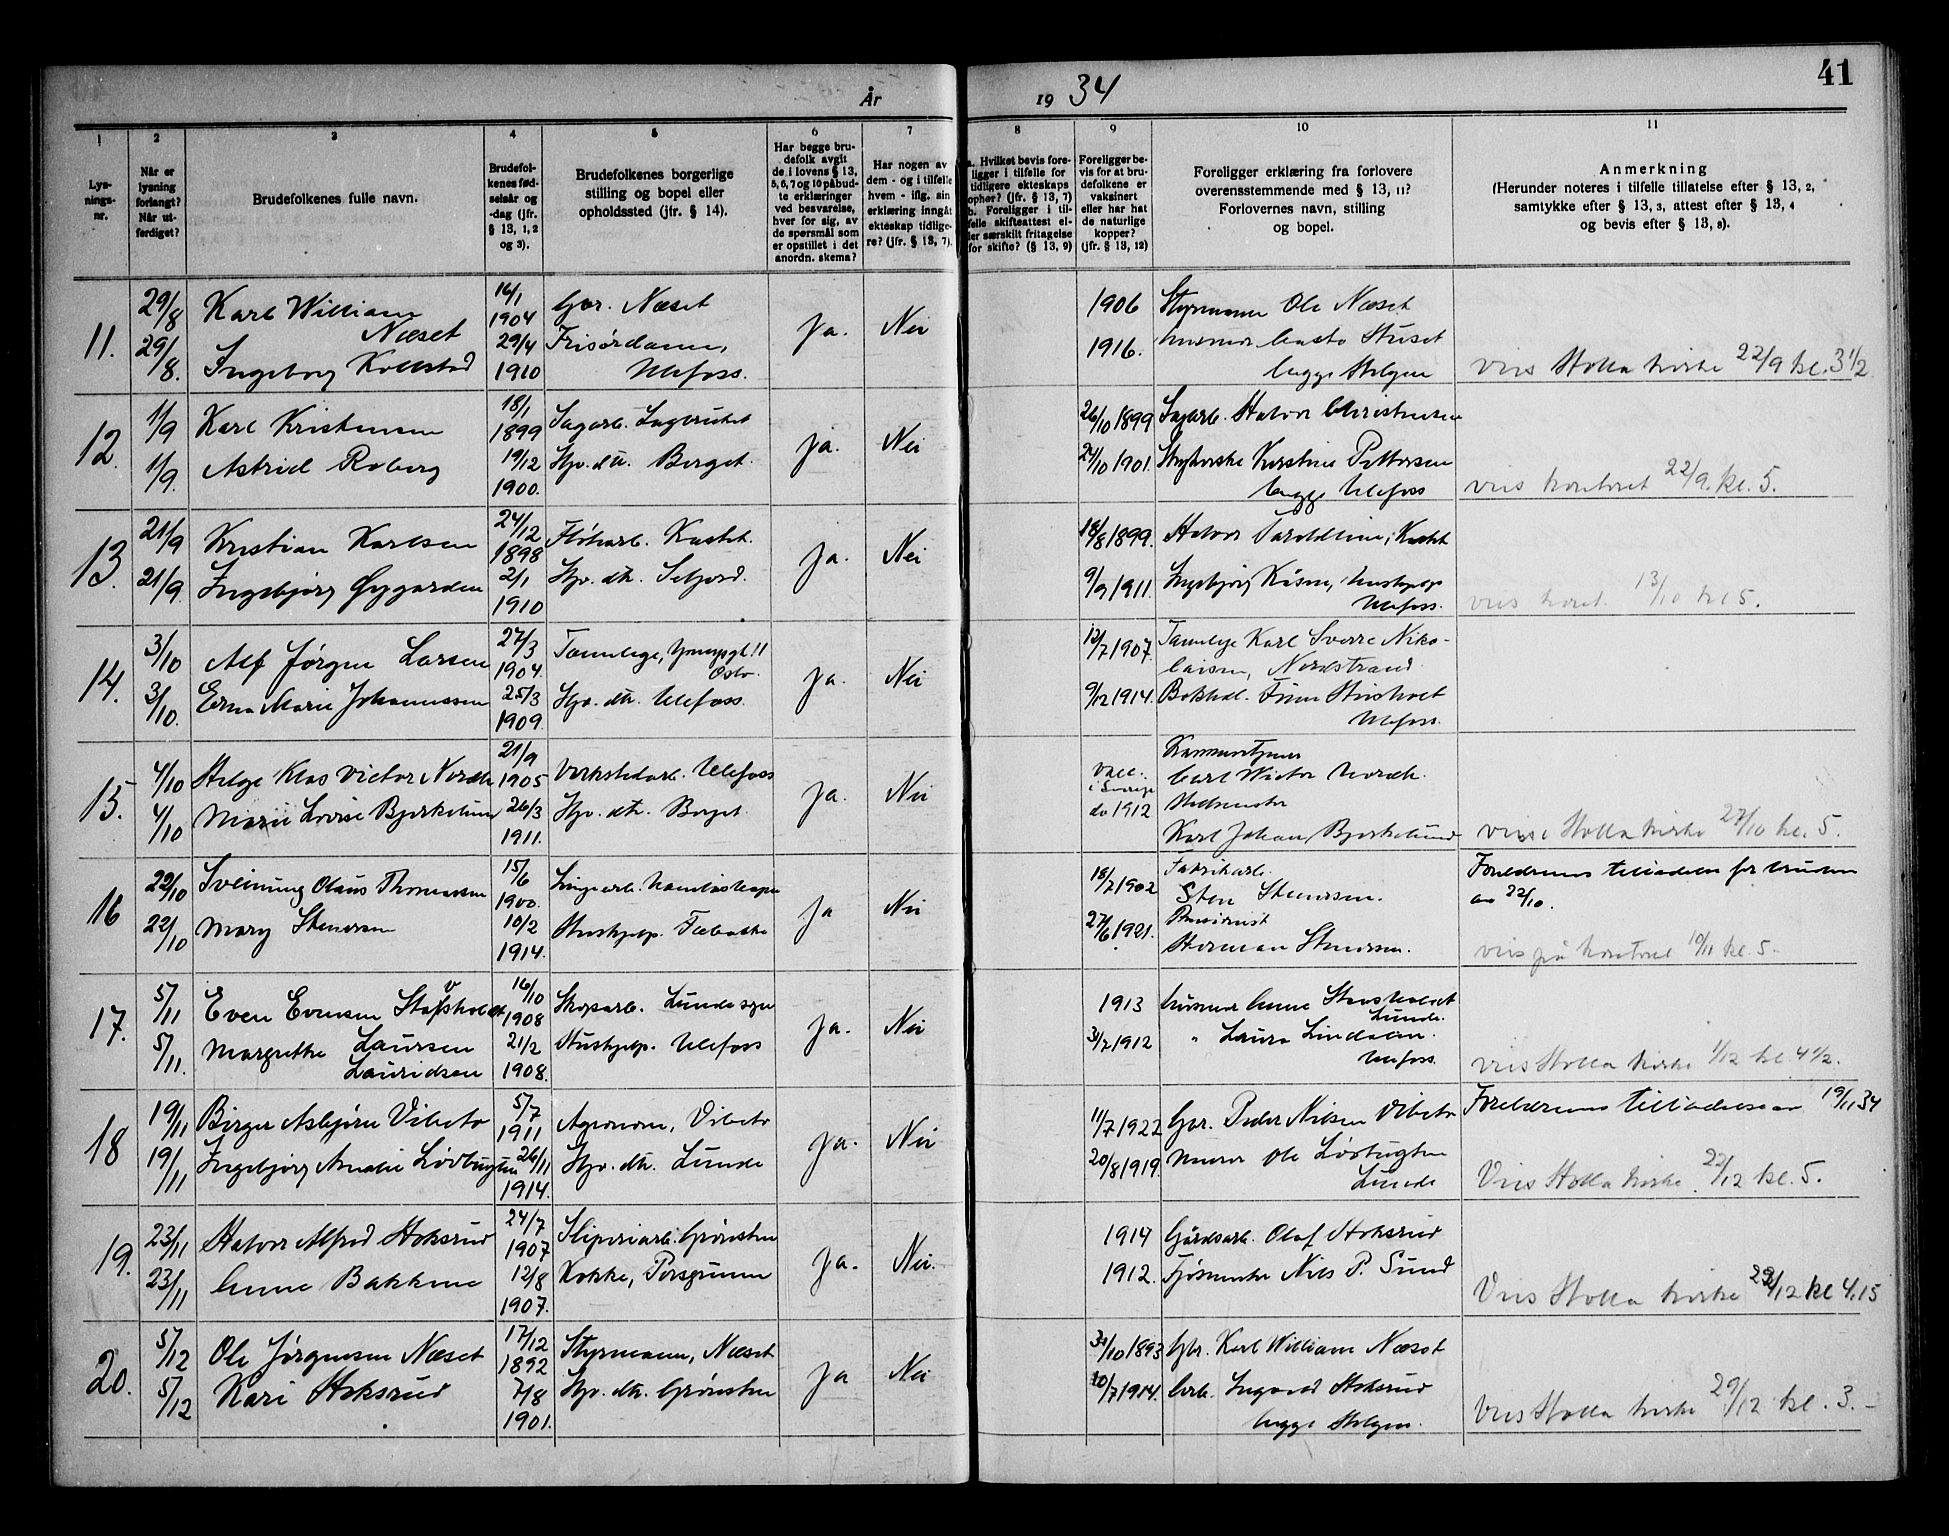 41
År 1934
1 2 3 4 5 6 7 8 9 10 11
Lys-
nings-
nr.
Når er
lysning
forlangt?
Når ut-
ferdiget?
Brudefolkenes fulle navn.
Brudefol-
kenes fød-
selsår og
-dag (jfr.
§ 13, 1, 2
og 3).
Brudefolkenes borgerlige
stilling og bopel eller
opholdssted (jfr. § 14).
Har begge bru-
defolk avgit
de i lovens § 13,
5, 6, 7 og 10 påbud-
te erklæringer
ved besvarelse,
hver for sig, av
de spørsmål som
er opstillet i det
anordn. skema?
Har nogen av
dem - og i tilfelle
hvem - iflg. sin
erklæring inngått
ekteskap tidlige-
re? (jfr. § 13, 7).
a. Hvilket bevis fore-
ligger i tilfelle for
tidligere ekteskaps
ophør? (jfr. § 13, 7)
b. Foreligger i til-
felle skifteattest el-
ler særskilt fritagelse
for skifte? (§ 13, 9)
Foreligger be-
vis for at bru-
defolkene er
vaksinert
eller har hat
de naturlige
kopper?
(jfr. § 13, 12)
Foreligger erklæring fra forlovere
overensstemmende med § 13, 11?
Forlovernes navn, stilling
og bopel.
Anmerkning
(Herunder noteres i tilfelle tillatelse efter § 13, 2,
samtykke efter § 13, 3, attest efter § 13, 4
og bevis efter § 13, 8).
11. 29/8 Karl William Næset 16/1 1904 Gbr. Næset Ja. Nei 1906 Styrmann Ole Næset
29/8. Ingeborg Kollstad 29/4 1910 Frisørdame, Ulefoss. 1916. Stuset
begge Helgen viis Holla kirke 22/9 kl. 3 1/2
12. 1/9 Karl Kristensen 18/1 1899 Sagarb. ja. Nei 26/10 1899 Sagarb. Halvor Christensen
1/9. Astrid Roberg 19/12 1900. Hjv. dtr. Berget. 24/10 1901. Kirstine Pettersen
begge Ulefoss viis kontoret 22/9. kl. 5.
13. 21/9 Kristian Karlsen 24/12 1898 Fløtarb. Kastet. Ja. Nei 18/8 1899. Halvor Kastet
21/9 Ingebjørg Øygarden 2/1 1910 Hjv. dtr. Seljord. 9/9 1911. Ingebjørg
Ulefoss. viis kont. 13/10 kl 5.
14. 3/10 Alf Jørgen Larsen 27/3 1904. Tannlege, 11 Oslo. Ja. Nei 12/7 1907. Tannlege Karl Sverre Niko-
laisen, Nordstrand.
3/10. Erna Marie Johannessen 25/3 1909. Hjv. dtr. Ulefoss. 9/12 1914. Bokhol. Finn
Ulefoss.
15. 4/10 Helge Klas Victor Nordh 21/9 1905 Verkstedarb. Ulefoss Ja. Nei vacc. i Sverige
Carl Victor Nordh.
4/10 Marie Lovise Bjerkelund 26/3 1911. Hjv. dtr. Berget. do 1912
Karl Johan Bjerkelund viis i Holla kirke 27/10 kl. 5.
16 22/10 Sveinung Olaus Thomassen 15/6 1900. Ja Nei 18/7 1902 Fabrikarb.
Sten Stenersen. Foreldrenes tilladelse for bruden
av 22/10.
22/10 Mary Stenersen 10/2 1914. Hushjelp. 27/6 1921. Pensionist
Herman Stenersen. viis på kontoret 10/11 kl. 5.
17. 5/11 Even Evensen Stafsholdt 16/10 1908 Skogsarb. Lunde sogn Ja. Nei 1913 husmor Anne
Lunde.
5/11. Margrethe Laursen 21/2 1908. Hushjelp. Ulefoss 3/7 1912 " Laura Lindalen.
Lauridsen Ulefoss. viis Holla kirke 1/12 kl. 4 1/2.
18 19/11 Birger Asbjørn Vibeto 5/7 1911 Agronom, Vibeto Ja. Nei 11/7 1922 Gbr. Peder Nilsen Vibeto Foreldrenes tilladelse av 19/11 34
19/11 Ingebjørg Amalie Løvbugten 26/11 1914. Hjv. dtr. Lunde 20/8 1919. murer Ole Løvbugten
Lunde Viis Holla kirke 22/12 kl. 5.
19. 23/11 Halvor Alfred Hoksrud 24/7 1907 Sliperiarb. Grønsten Ja. Nei. 1914 Gårdsarb. Olaf Hoksrud
23/11 Anne Bakkene 12/8 1907. Kokke, Porsgrunn 1912. Fjøsmester Nils P. Sund
Viis Holla kirke 22/12 kl 4.15
20. 5/12 Ole Jørgensen Næset 17/12 1892 Styrmann, Næset Ja Nei 31/10 1893 Gbr. Karl William Næset
5/12 Kari Hoksrud 7/8 1901. Hjv. dtr. Grønsten 10/7 1914. arb. Ingvald Hoksrud
begge Helgen. Viis Holla kirke 29/12 kl. 3.